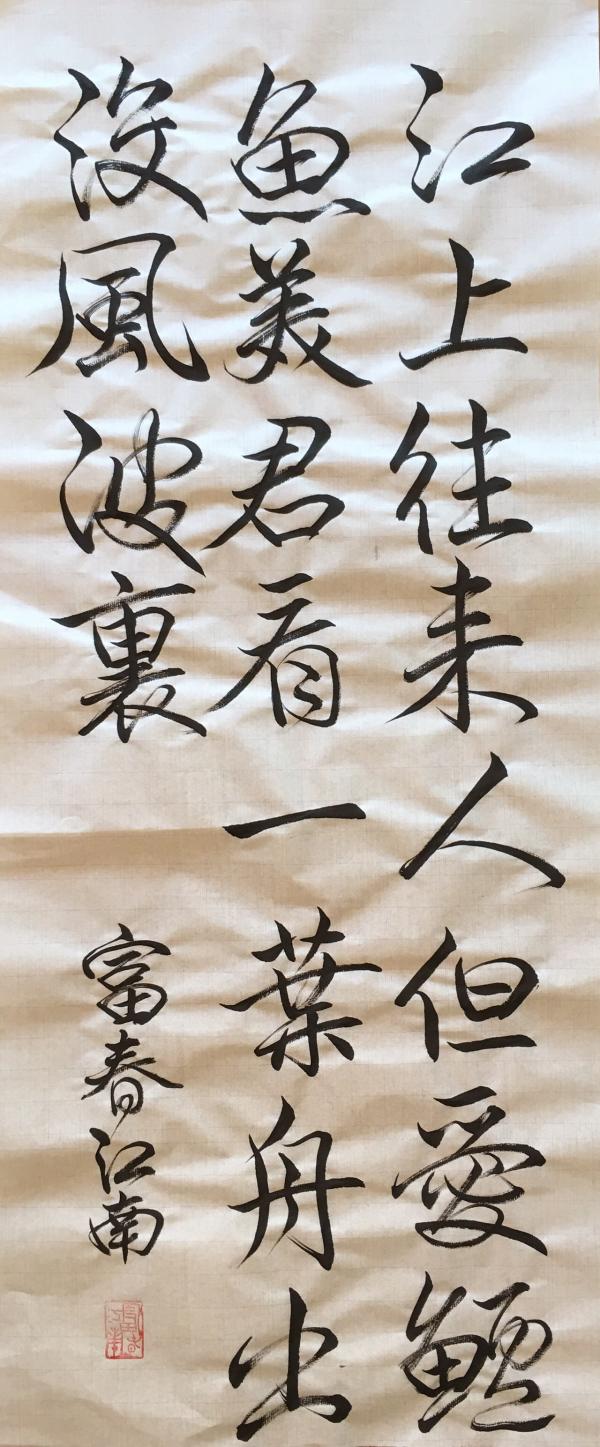 江上往来人但愛鱸
魚美君看一葉舟出
没風波裏
富春江南